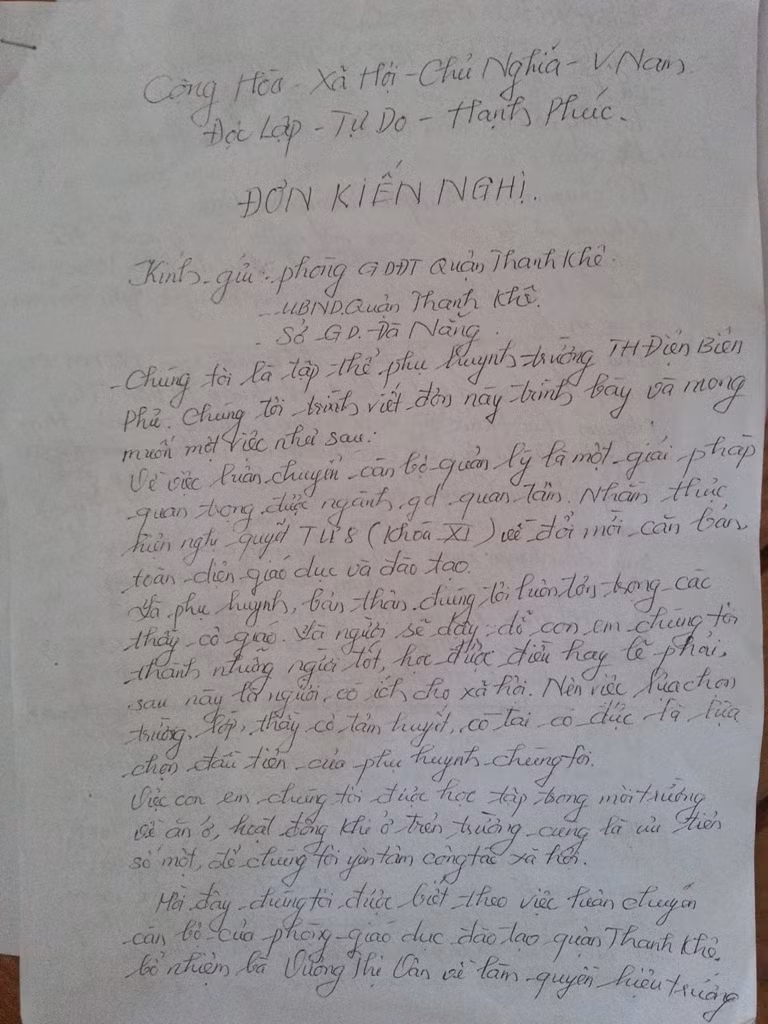 Cộng Hòa - Xã Hội - Chủ Nghĩa - V.Nam
Độc Lập - Tự Do - Hạnh Phúc.
ĐƠN KIẾN NGHỊ.
Kính gửi: phòng GDĐT Quận Thanh Khê.
- UBND.Quận Thanh Khê.
- Sở GD. Đà Nẵng.
- Chúng tôi là tập thể phụ huynh trường TH Điện Biên
Phủ. Chúng tôi trình viết đơn này trình bày và mong
muốn một việc như sau:
Về việc luân chuyển cán bộ quản lý là một giải pháp
quan trọng được ngành gd quan tâm. Nhằm thực
hiện nghị quyết TW8 (Khóa XI) về đổi mới căn bản,
toàn diện giáo dục và đào tạo.
Là phụ huynh, bản thân chúng tôi luôn tôn trọng các
thầy cô giáo. Là người sẽ dạy dỗ con em chúng tôi
thành những người tốt, học được điều hay lẽ phải,
sau này là người có ích cho xã hội. Nên việc lựa chọn
trường, lớp, thầy cô tâm huyết, có tài có đức là lựa
chọn đầu tiên của phụ huynh chúng tôi.
Việc con em chúng tôi được học tập trong môi trường
về ăn ở, hoạt động khi ở trên trường cũng là ưu tiên
số một, để chúng tôi yên tâm công tác xã hội.
Mới đây chúng tôi được biết theo việc luân chuyển
cán bộ của phòng giáo dục đào tạo quận Thanh Khê.
bổ nhiệm bà Vương Thị Vân về làm quyền hiệu trưởng